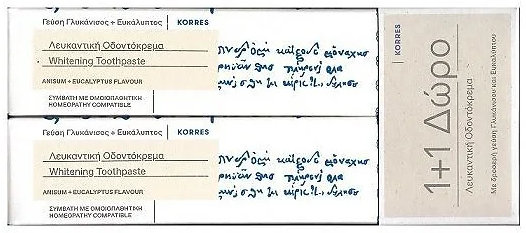 Γεύση Γλυκάνισος + Ευκάλυπτος | KORRES
Λευκαντική Οδοντόκρεμα
Whitening Toothpaste
ANISUM + EUCALYPTUS FLAVOUR
ΣΥΜΒΑΤΗ ΜΕ ΟΜΟΙΟΠΑΘΗΤΙΚΗ
HOMEOPATHY COMPATIBLE
Γεύση Γλυκάνισος + Ευκάλυπτος | KORRES
Λευκαντική Οδοντόκρεμα
Whitening Toothpaste
ANISUM + EUCALYPTUS FLAVOUR
ΣΥΜΒΑΤΗ ΜΕ ΟΜΟΙΟΠΑΘΗΤΙΚΗ
HOMEOPATHY COMPATIBLE
KORRES
1+1 Δώρο
Λευκαντική Οδοντόκρεμα
Με δροσερή γεύση Γλυκάνισου και Ευκαλύπτου